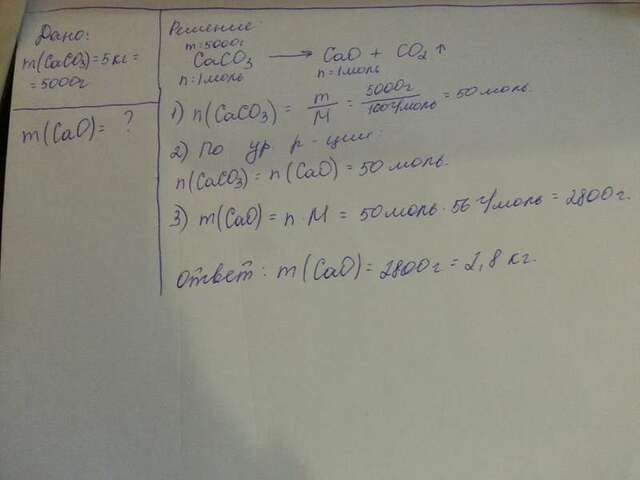 Дано:
m(CaCO₃)=5 кг=
=5000г
m(CaO)= ?
Решение:
m=5000г
CaCO₃ → CaO + CO₂↑
n=1моль n=1моль
1) n(CaCO₃) = m/M = 5000г/100г/моль = 50 моль.
2) По ур. р-ции:
n(CaCO₃) = n(CaO) = 50 моль.
3) m(CaO) = n·M = 50 моль·56 г/моль = 2800г.
Ответ: m(CaO) = 2800г = 2,8 кг.